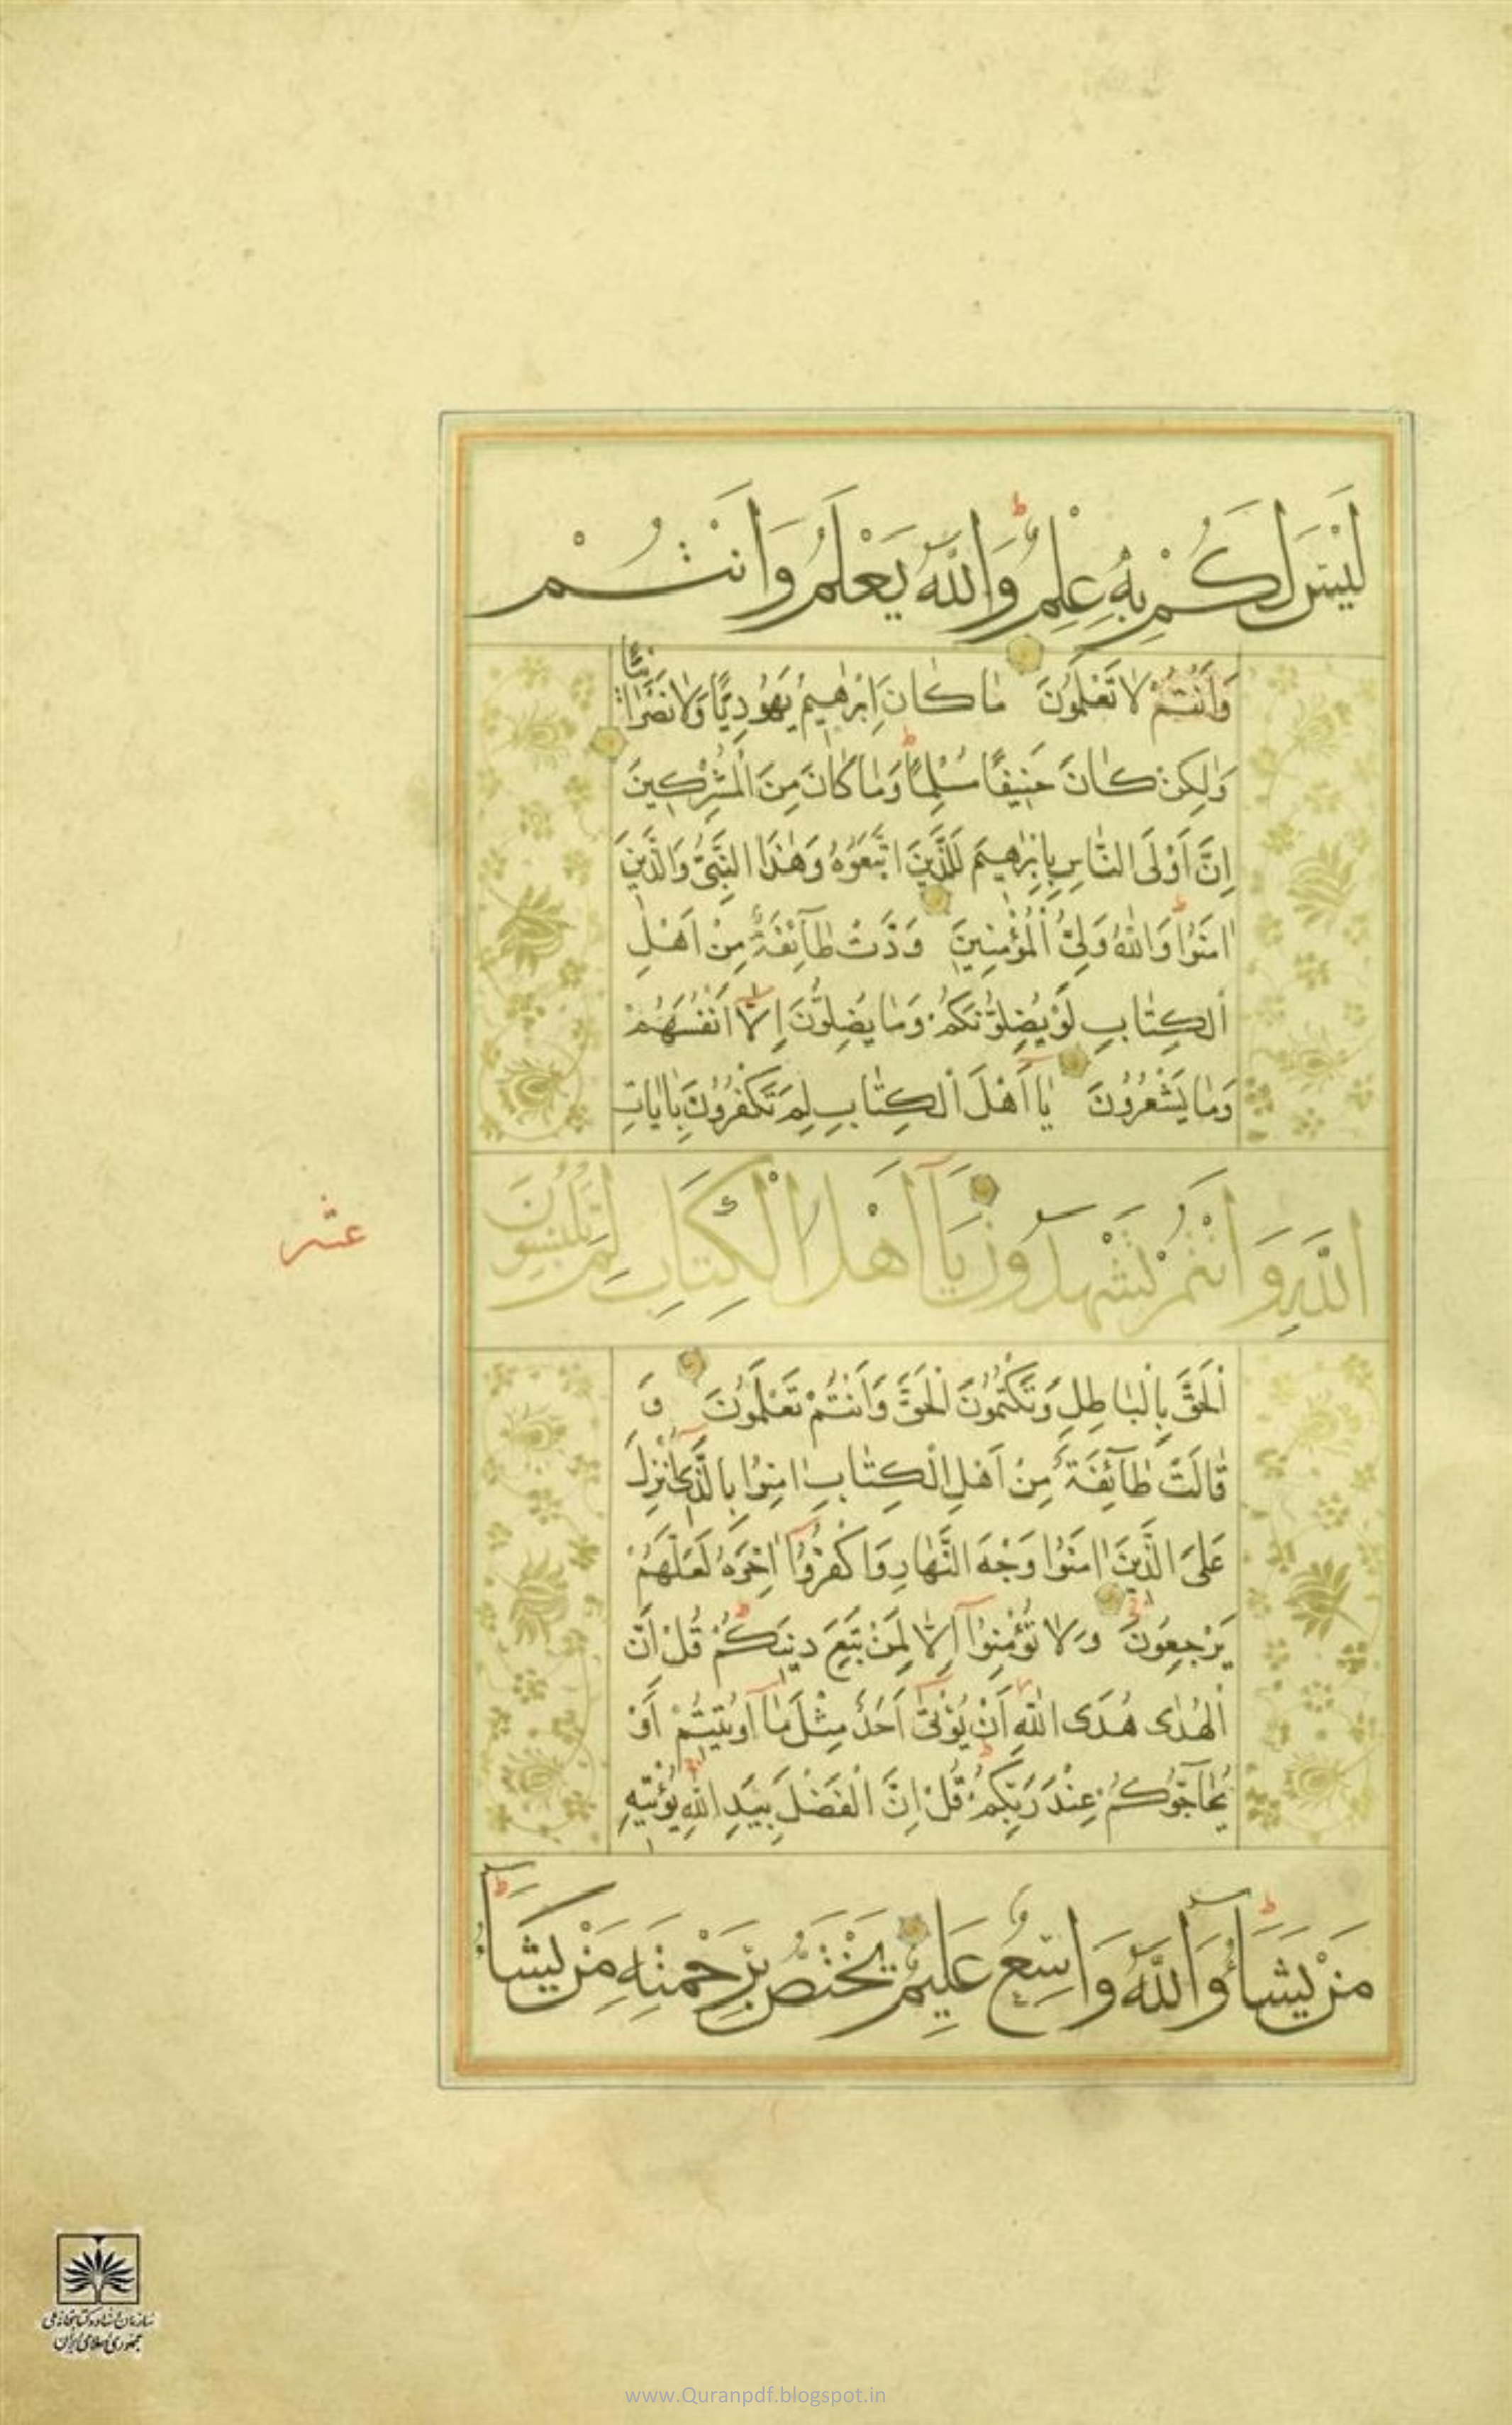 لَيْسَ لَكُمْ بِهِ عِلْمٌ وَاللّٰهُ يَعْلَمُ وَاَنْتُمْ
وَاَنْتُمْ لَا تَعْلَمُونَ مَا كَانَ اِبْرٰهِيمُ يَهُودِيًّا وَلَا نَصْرَانِيًّا
وَلٰكِنْ كَانَ حَنِيفًا مُسْلِمًا وَمَا كَانَ مِنَ الْمُشْرِكِينَ
اِنَّ اَوْلَى النَّاسِ بِاِبْرٰهِيمَ لَلَّذِينَ اتَّبَعُوهُ وَهٰذَا النَّبِىُّ وَالَّذِينَ
اٰمَنُوا وَاللّٰهُ وَلِىُّ الْمُؤْمِنِينَ وَدَّتْ طَآئِفَةٌ مِنْ اَهْلِ
الْكِتَابِ لَوْ يُضِلُّونَكُمْ وَمَا يُضِلُّونَ اِلَّا اَنْفُسَهُمْ
وَمَا يَشْعُرُونَ يَا اَهْلَ الْكِتَابِ لِمَ تَكْفُرُونَ بِاٰيَاتِ
اللّٰهِ وَاَنْتُمْ تَشْهَدُونَ يَآ اَهْلَ الْكِتَابِ لِمَ تَلْبِسُونَ
عشر
الْحَقَّ بِالْبَاطِلِ وَتَكْتُمُونَ الْحَقَّ وَاَنْتُمْ تَعْلَمُونَ وَ
قَالَتْ طَآئِفَةٌ مِنْ اَهْلِ الْكِتَابِ اٰمِنُوا بِالَّذِى اُنْزِلَ
عَلَى الَّذِينَ اٰمَنُوا وَجْهَ النَّهَارِ وَاكْفُرُوا اٰخِرَهُ لَعَلَّهُمْ
يَرْجِعُونَ وَلَا تُؤْمِنُوا اِلَّا لِمَنْ تَبِعَ دِينَكُمْ قُلْ اِنَّ
الْهُدٰى هُدَى اللّٰهِ اَنْ يُؤْتٰى اَحَدٌ مِثْلَ مَا اُوتِيتُمْ اَوْ
يُحَآجُّوكُمْ عِنْدَ رَبِّكُمْ قُلْ اِنَّ الْفَضْلَ بِيَدِ اللّٰهِ يُؤْتِيهِ
مَنْ يَشَآءُ وَاللّٰهُ وَاسِعٌ عَلِيمٌ يَخْتَصُّ بِرَحْمَتِهِ مَنْ يَشَآءُ
سازمان اسناد و کتابخانه ملی
جمهوری اسلامی ایران
www.Quranpdf.blogspot.in